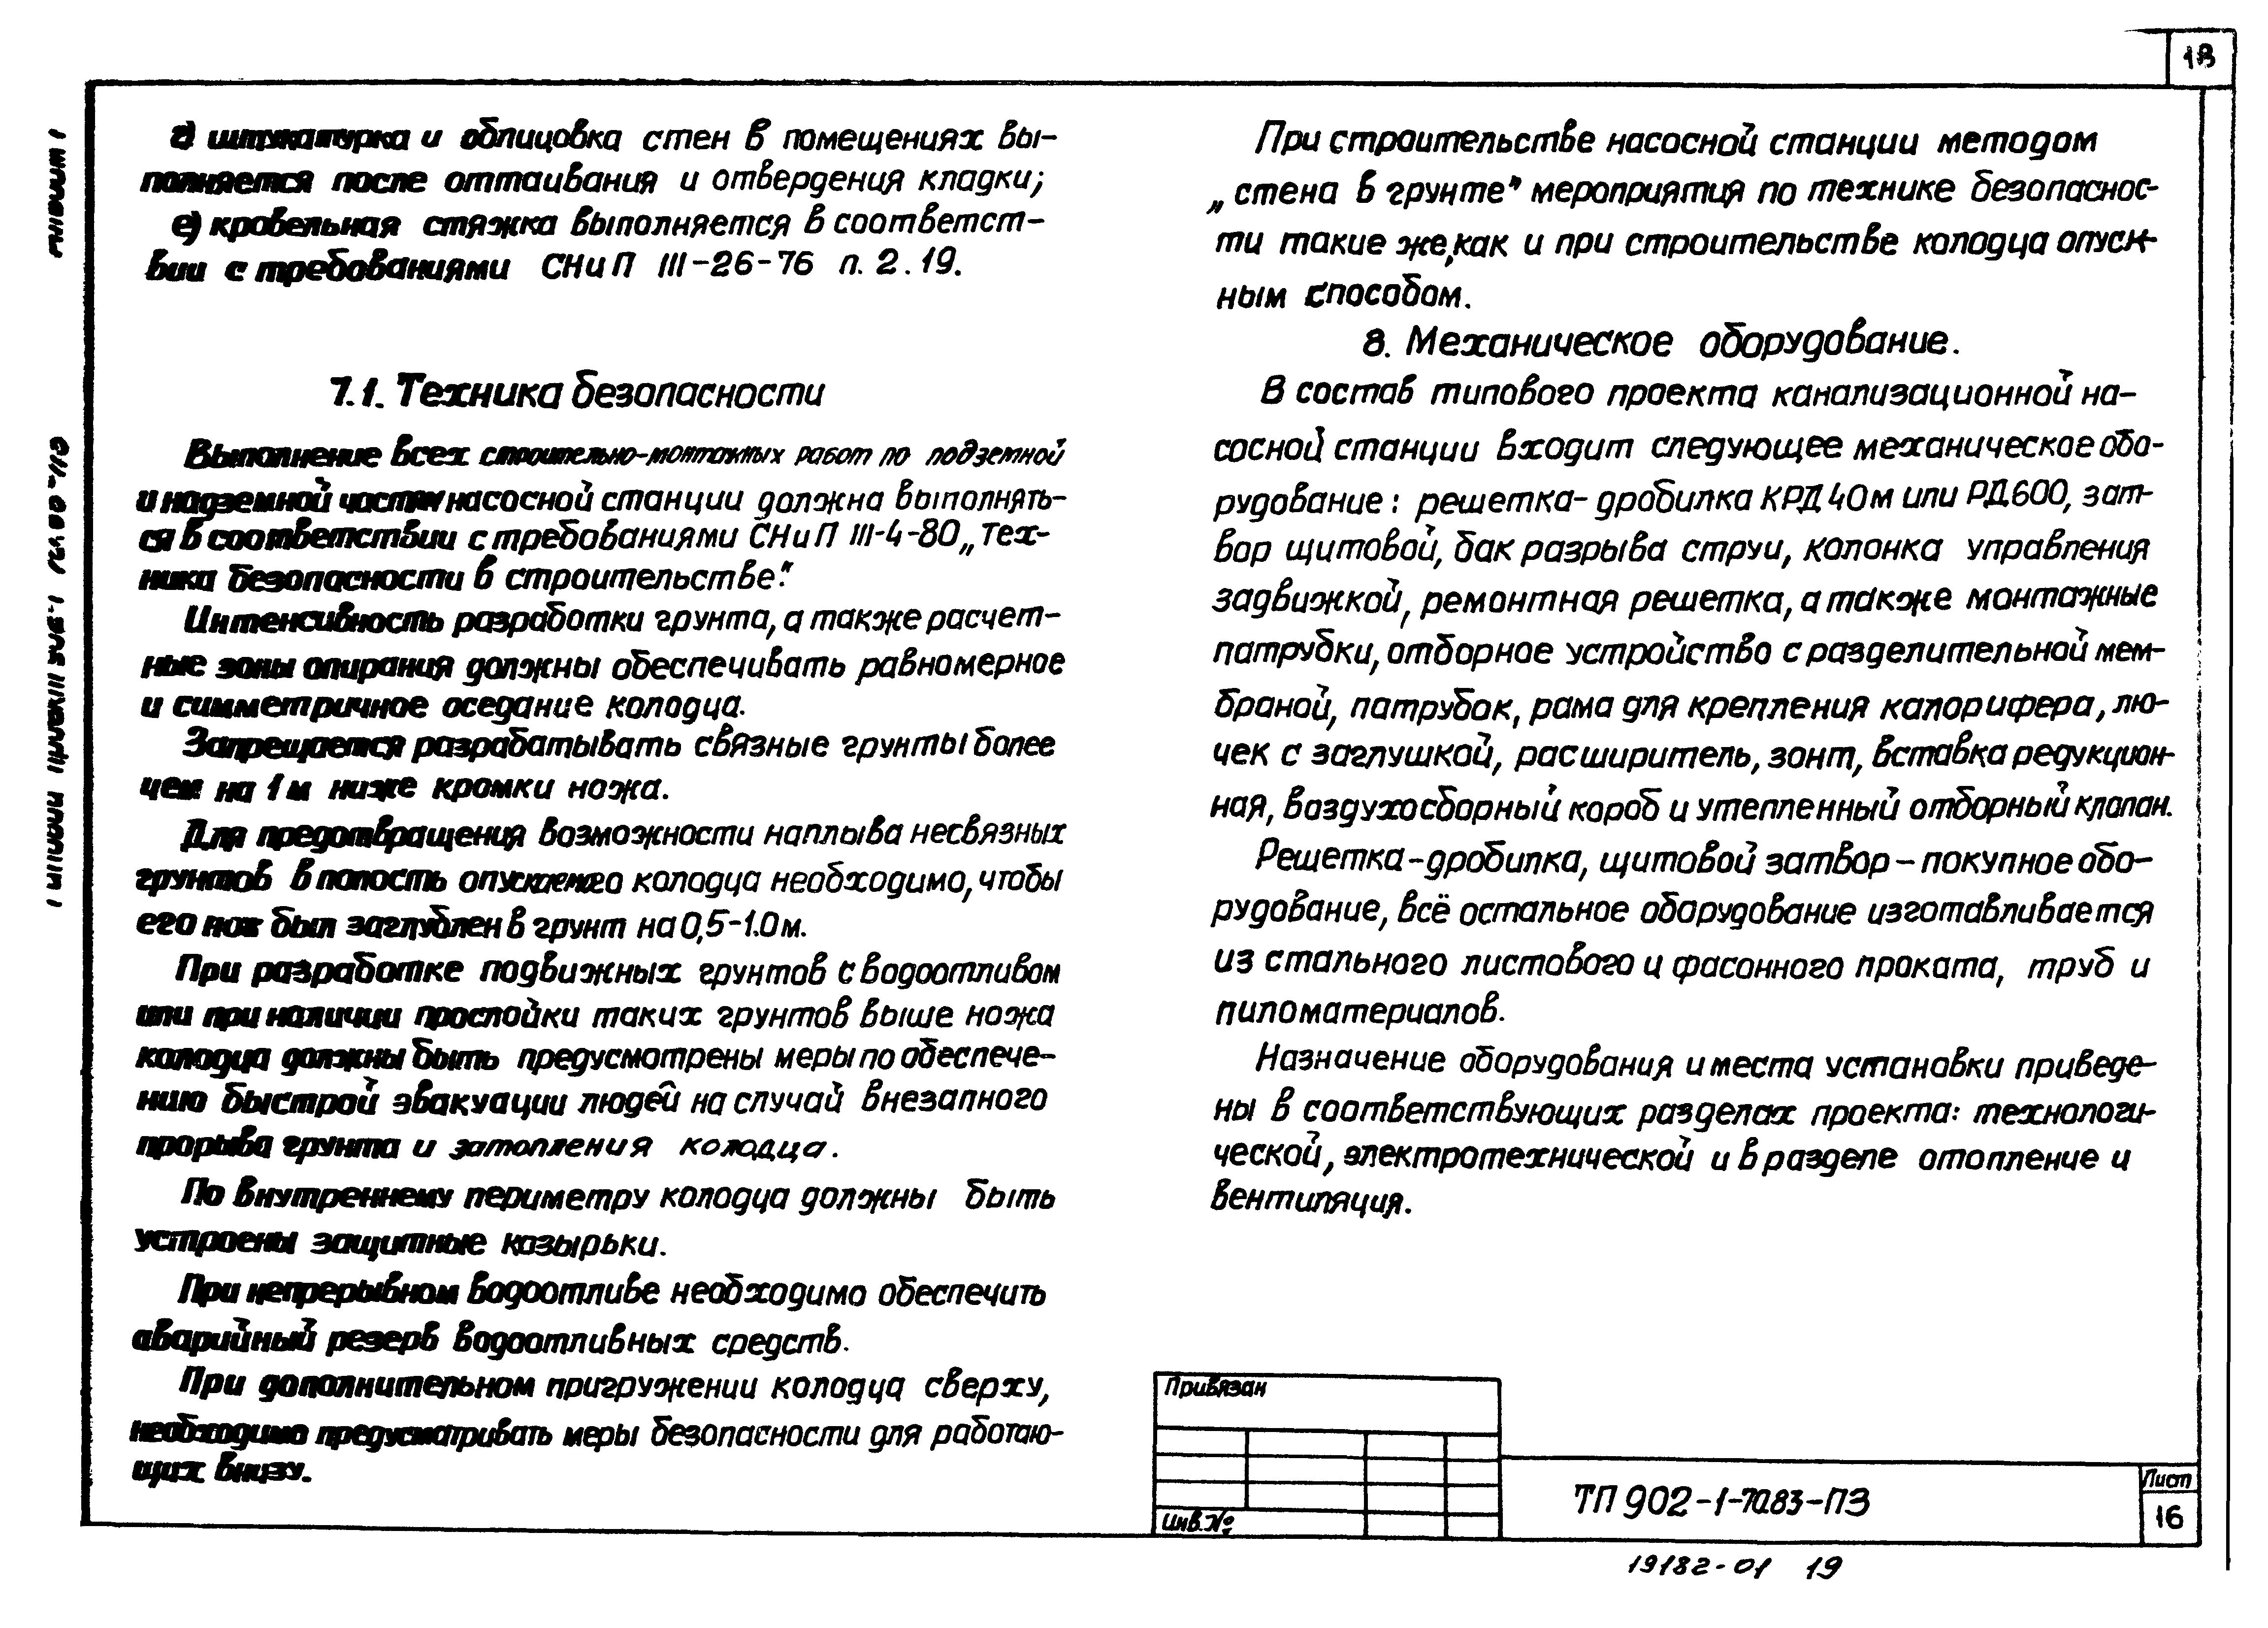 18
г) штукатурка и облицовка стен в помещениях вы-
полняется после оттаивания и отвердения кладки;
е) кровельная стяжка выполняется в соответст-
вии с требованиями СНиП III-26-76 п. 2.19.
7.1. Техника безопасности
Выполнение всех строительно-монтажных работ по подземной
и надземной частям насосной станции должна выполнять-
ся в соответствии с требованиями СНиП III-4-80 „Тех-
ника безопасности в строительстве".
Интенсивность разработки грунта, а также расчет-
ные зоны опирания должны обеспечивать равномерное
и симметричное оседание колодца.
Запрещается разрабатывать связные грунты более
чем на 1 м ниже кромки ножа.
Для предотвращения возможности наплыва несвязных
грунтов в полость опускаемого колодца необходимо, чтобы
его нож был заглублен в грунт на 0,5-1.0 м.
При разработке подвижных грунтов с водоотливом
или при наличии прослойки таких грунтов выше ножа
колодца должны быть предусмотрены меры по обеспече-
нию быстрой эвакуации людей на случай внезапного
прорыва грунта и затопления колодца.
По внутреннему периметру колодца должны быть
устроены защитные козырьки.
При непрерывном водоотливе необходимо обеспечить
аварийный резерв водоотливных средств.
При дополнительном пригружении колодца сверху,
необходимо предусматривать меры безопасности для работаю-
щих внизу.
При строительстве насосной станции методом
„стена в грунте" мероприятия по технике безопаснос-
ти такие же, как и при строительстве колодца опуск-
ным способом.
8. Механическое оборудование.
В состав типового проекта канализационной на-
сосной станции входит следующее механическое обо-
рудование: решетка-дробилка КРД 40м или РД600, зат-
вор щитовой, бак разрыва струи, колонка управления
задвижкой, ремонтная решетка, а также монтажные
патрубки, отборное устройство с разделительной мем-
браной, патрубок, рама для крепления калорифера, лю-
чек с заглушкой, расширитель, зонт, вставка редукцион-
ная, воздухосборный короб и утепленный отборный клапан.
Решетка-дробилка, щитовой затвор – покупное обо-
рудование, всё остальное оборудование изготавливается
из стального листового и фасонного проката, труб и
пиломатериалов.
Назначение оборудования и места установки приведе-
ны в соответствующих разделах проекта: технологи-
ческой, электротехнической и в разделе отопление и
вентиляция.
Привязан
Инв.№
ТП 902-1-70.83-ПЗ
Лист
16
19182-01 19